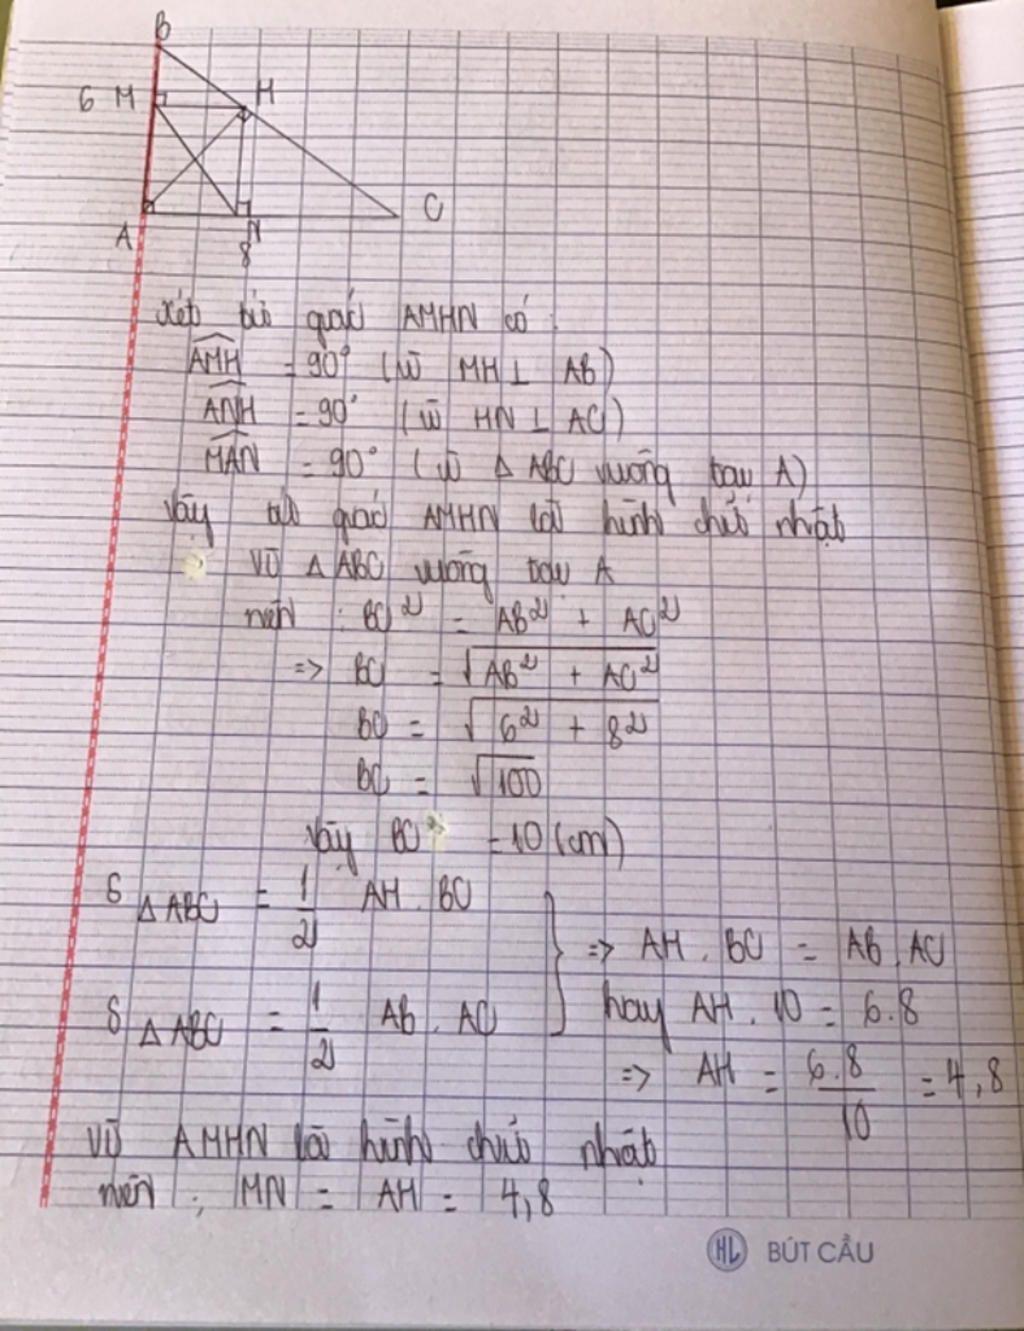 B
6 M H
A N C
8
Xét tứ giác AMHN có :
AMH = 90° (vì MH ⊥ AB)
ANH = 90° (vì HN ⊥ AC)
MAN = 90° (vì Δ ABC vuông tại A)
Vậy tứ giác AMHN là hình chữ nhật
Vì Δ ABC vuông tại A
nên : BC² = AB² + AC²
=> BC = √AB² + AC²
BC = √6² + 8²
BC = √100
Vậy BC = 10 (cm)
S Δ ABC = 1/2 AH . BC
S Δ ABC = 1/2 Ab . AC
=> AH . BC = AB . AC
hay AH . 10 = 6.8
=> AH = 6.8/10 = 4,8
Vì AMHN là hình chữ nhật
nên : MN = AH = 4,8
HL BÚT CẦU